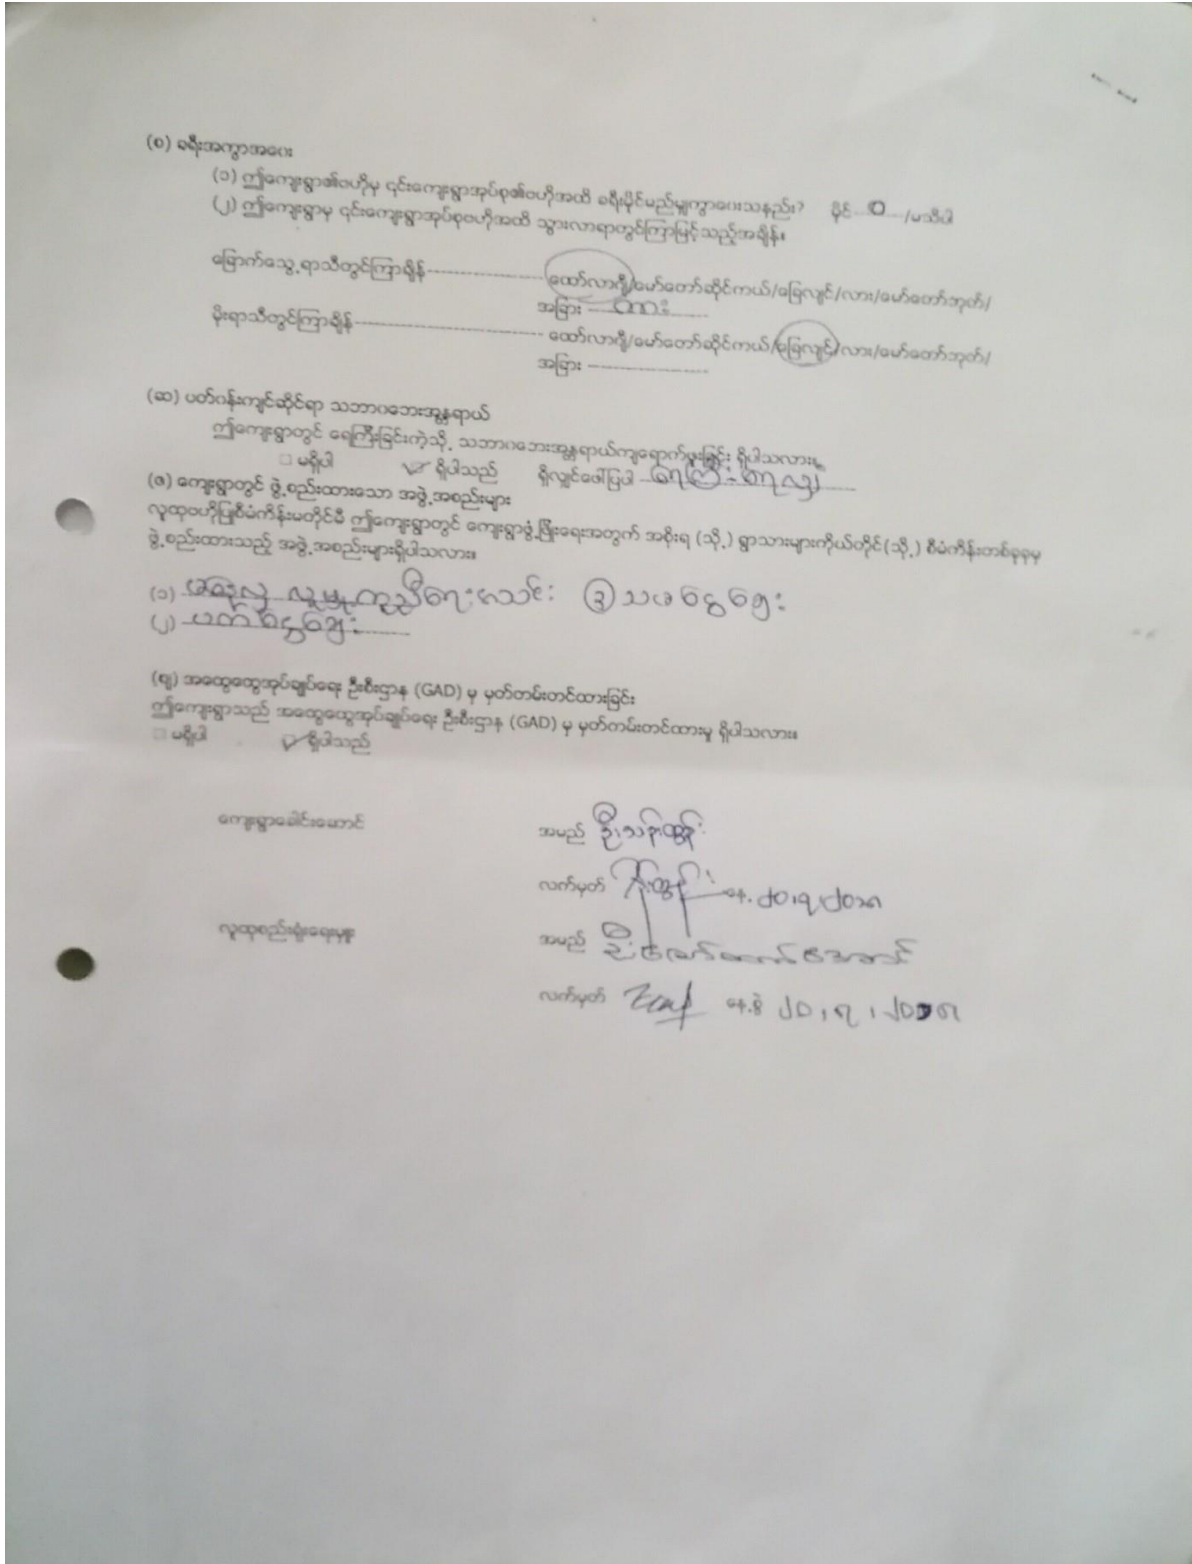 (စ) ခရီးအကွာအဝေး
(၁) ဤကျေးရွာ၏ဗဟိုမှ ၎င်းကျေးရွာအုပ်စု၏ဗဟိုအထိ ခရီးမိုင်မည်မျှကွာဝေးသနည်း? မိုင် ... ၀ ... /မသိပါ
(၂) ဤကျေးရွာမှ ၎င်းကျေးရွာအုပ်စုဗဟိုအထိ သွားလာရာတွင်ကြာမြင့်သည့်အချိန်။
ခြောက်သွေ့ရာသီတွင်ကြာချိန် ---------------- ထော်လာဂျီ/မော်တော်ဆိုင်ကယ်/ခြေလျင်/လား/မော်တော်ဘုတ်/
အခြား ----------------
မိုးရာသီတွင်ကြာချိန် ---------------- ထော်လာဂျီ/မော်တော်ဆိုင်ကယ်/ခြေလျင်/လား/မော်တော်ဘုတ်/
အခြား ----------------
(ဆ) ပတ်ဝန်းကျင်ဆိုင်ရာ သဘာဝဘေးအန္တရာယ်
ဤကျေးရွာတွင် ရေကြီးခြင်းကဲ့သို့ သဘာဝဘေးအန္တရာယ်ကျရောက်ဖူးခြင်း ရှိပါသလား။
□ မရှိပါ ☑ ရှိပါသည် ရှိလျှင်ဖော်ပြပါ ရေကြီး-ရေလျှံ
(ဇ) ကျေးရွာတွင် ဖွဲ့စည်းထားသော အဖွဲ့အစည်းများ
လူထုဗဟိုပြုစီမံကိန်းမတိုင်မီ ဤကျေးရွာတွင် ကျေးရွာဖွံ့ဖြိုးရေးအတွက် အစိုးရ (သို့) ရွာသားများကိုယ်တိုင်(သို့) စီမံကိန်းတစ်ခုခုမှ
ဖွဲ့စည်းထားသည့် အဖွဲ့အစည်းများရှိပါသလား။
(၁) လူမှုကူညီရေးအသင်း ③ သဖငွေချေး
(၂) ပတ်ငွေချေး
(ဈ) အထွေထွေအုပ်ချုပ်ရေး ဦးစီးဌာန (GAD) မှ မှတ်တမ်းတင်ထားခြင်း
ဤကျေးရွာသည် အထွေထွေအုပ်ချုပ်ရေး ဦးစီးဌာန (GAD) မှ မှတ်တမ်းတင်ထားမှု ရှိပါသလား။
□ မရှိပါ ☑ ရှိပါသည်
ကျေးရွာခေါင်းဆောင် အမည် ဦးသန်းထွန်း
လက်မှတ် နေ့ ၂၀.၇.၂၀၁၈
လူထုစည်းရုံးရေးမှူး အမည်
လက်မှတ် နေ့စွဲ ၂၀.၇.၂၀၁၈